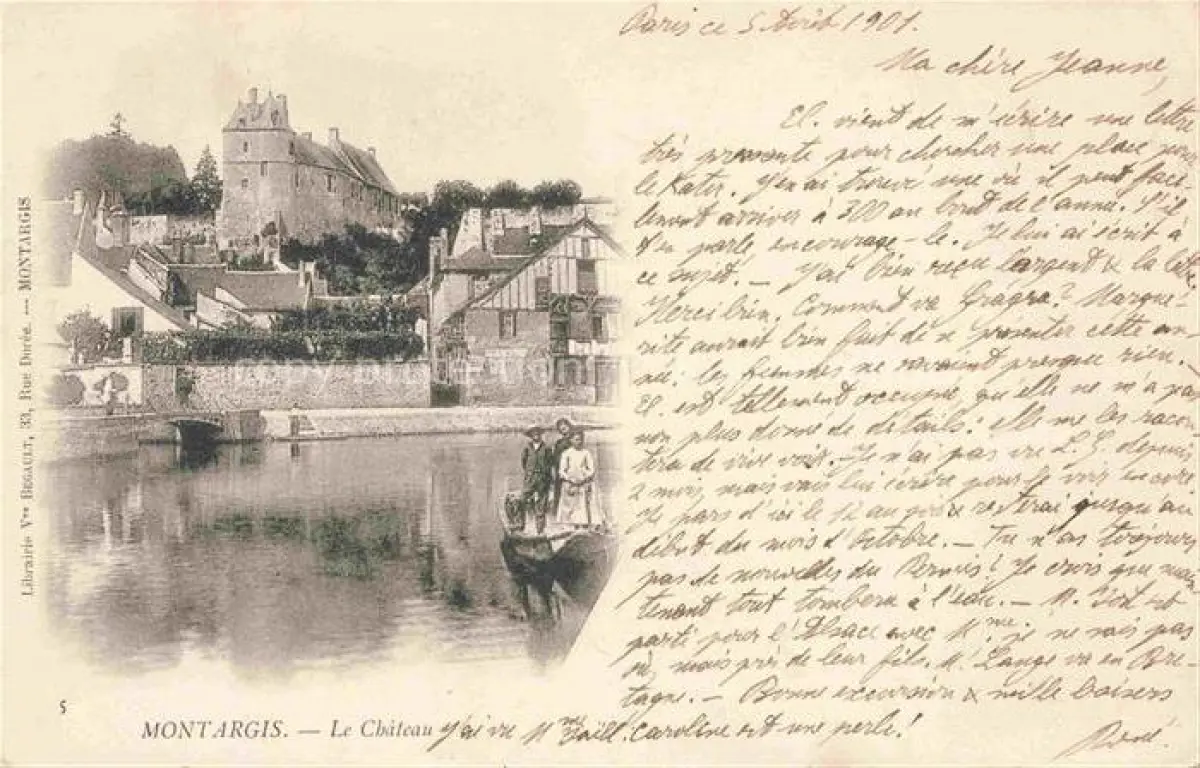 Paris ce 5 Août 1901.
Ma chère Jeanne,
El. vient de m'écrire une lettre
très pressante pour chercher une place pour
le Kater. J'en ai trouvé une où il peut faci-
lement arriver à 300 au bout de l'année. S'il
t'en parle encourage-le. Je lui ai écrit à
ce sujet. — J'ai bien reçu l'argent & la
Merci bien. Comment va Marque-
rite aurait bien fait de se présenter cette an-
née: les femmes ne savaient presque rien.
El. est tellement occupée, qu'elle ne m'a pas
non plus donné de détails: elle me les racon-
tera de vive voix. Je n'ai pas vu L.G. depuis
2 mois, mais vais lui écrire pour le voir encore.
Je pars d'ici le au & resterai jusqu'au
début du mois d'Octobre. — Tu n'as toujours
pas de nouvelles du Je crois que main-
tenant tout tombera à l'eau. — M. est
parti pour l'Alsace avec Mme. je ne sais pas
où, mais près de leur fils. M. Lange va en Bre-
tagne. — Bonne excursion & mille baisers
J'ai vu Mme Caroline est une perle!
René.
Librairie Vve BEGAULT, 33, Rue Dorée. — MONTARGIS
5
MONTARGIS. — Le Château